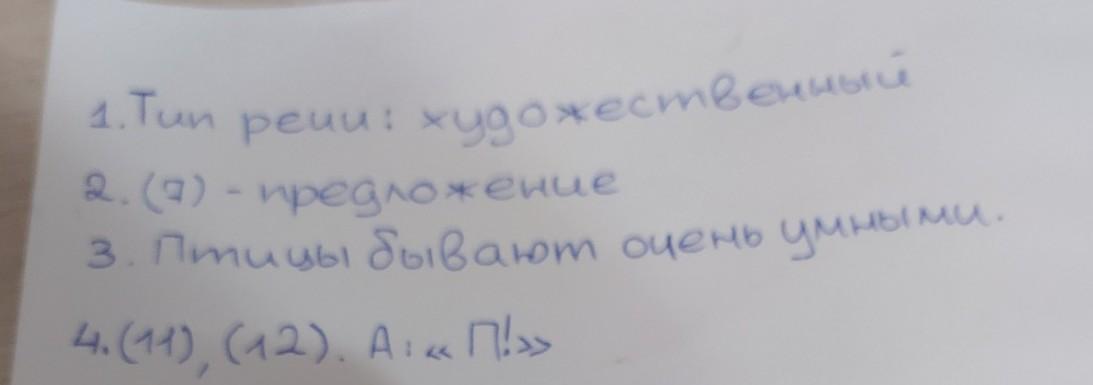 1. Тип речи: художественный
2. (7) - предложение
3. Птицы бывают очень умными.
4. (11), (12). А: « П!»